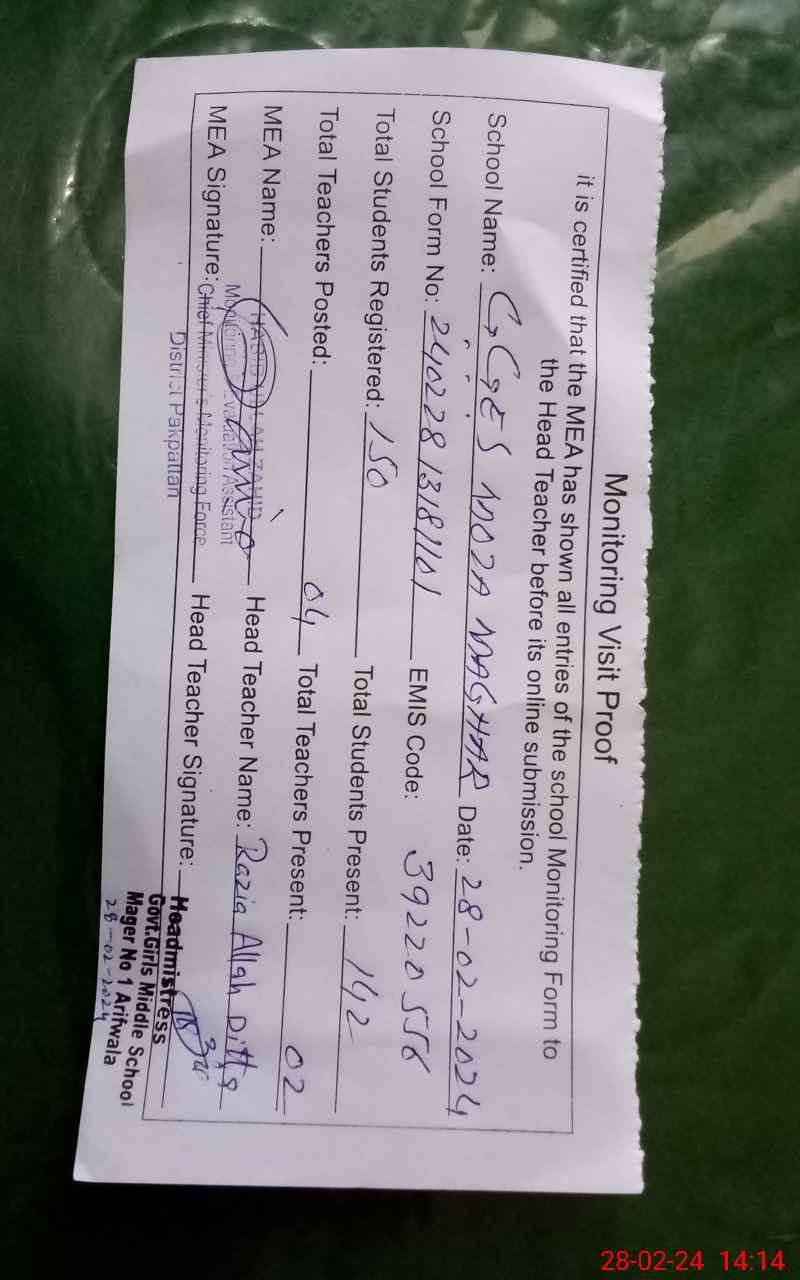 Monitoring Visit Proof
it is certified that the MEA has shown all entries of the school Monitoring Form to
the Head Teacher before its online submission.
School Name: G.G.E.S MOZA MAGHAR Date: 28-02-2024
School Form No: EMIS Code: 39220556
Total Students Registered: 150 Total Students Present: 142
Total Teachers Posted: 04 Total Teachers Present: 02
MEA Name: Head Teacher Name: Razia Allah Ditta
ZAHID
Monitoring Evaluation Assistant
MEA Signature: Chief Minister's Monitoring Force Head Teacher Signature:
District Pakpattan
Headmistress
Govt.Girls Middle School
Mager No 1 Arifwala
28-02-2024
28-02-24 14:14